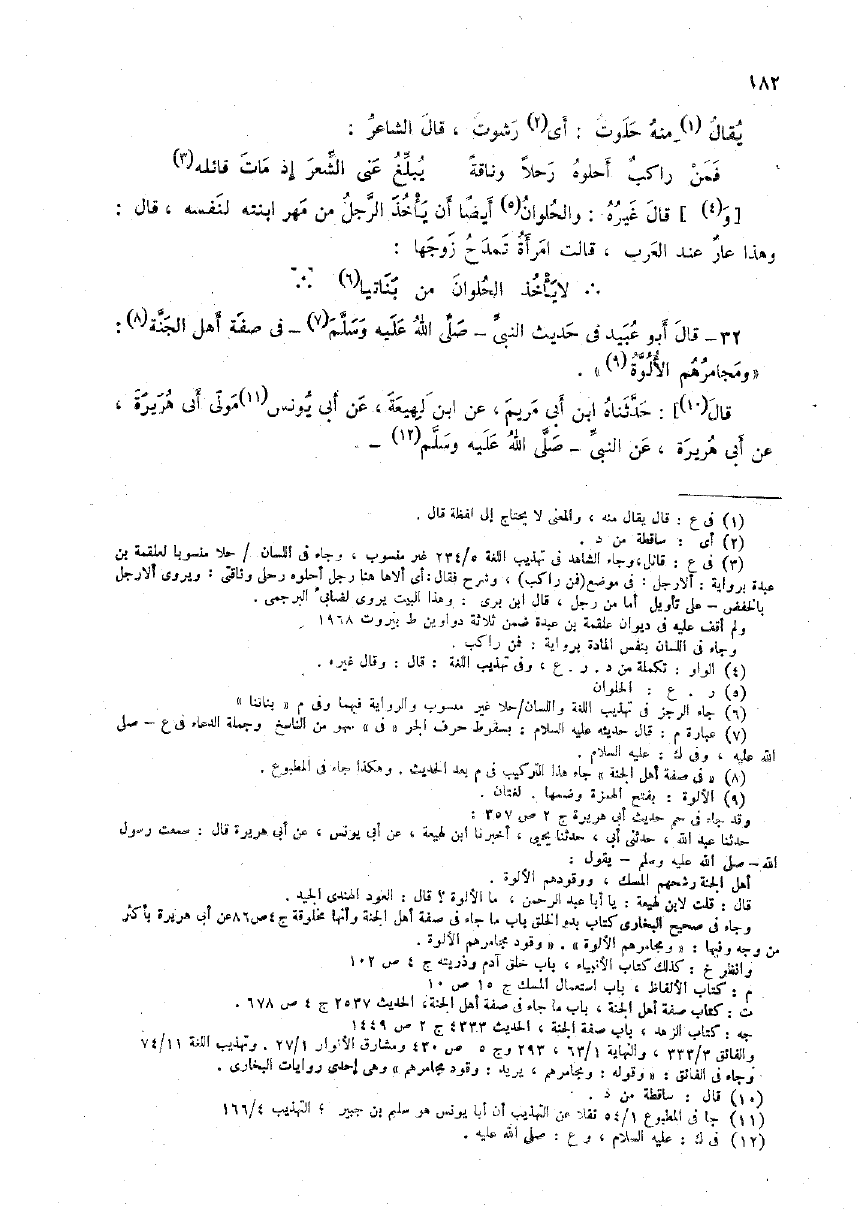 ١٨٢
يُقالُ (١) منهُ حَلَوتُ : أى(٢) رَشوتُ ، قالَ الشاعرُ :
فَمَنْ راكبٌ أحلوهُ رَحلاً وناقةً يُبلِّغُ عَنِّى الشِّعرَ إذ مَاتَ قائله(٣)
[وَ(٤)] قالَ غَيرُهُ : والحُلوانُ(٥) أيضًا أن يَأْخُذَ الرَّجلُ من مَهر ابنته لنَفسه ، قال :
وهذا عارٌ عند العَرب ، قالت امرَأةٌ تَمدَحُ زَوجَها :
∴ لايَأْخُذ الحُلوانَ من بَنَاتيا(٦) ∵
٣٢– قالَ أبو عُبَيد فى حَديث النبىِّ – صَلَّى اللهُ عَلَيه وَسَلَّمَ(٧) – فى صفَة أهل الجَنَّة(٨) :
«ومَجامرُهُم الأُلُوَّةُ (٩)» .
قالَ(١٠)] : حَدَّثَناهُ ابن أبى مَريمَ ، عن ابن لَهيعَةَ ، عَن أبى يُونس(١١)مَولَى أبى هُرَيرَةَ ،
عن أبى هُريرَة ، عَن النبىِّ – صَلَّى اللهُ عَلَيه وسَلَّم(١٢) –
(١) فى ع : قال يقال منه ، والمعنى لا يحتاج إلى لفظة قال .
(٢) أى : ساقطة من د .
(٣) فى ع : قائل،وجاء الشاهد فى تهذيب اللغة ٢٣٤/٥ غير منسوب ، وجاء فى اللسان / حلا منسوبا لعلقمة بن
عبدة برواية : ألارجل : فى موضع(فمن راكب) ، وشرح فقال:أى ألاها هنا رجل أحلوه رحلى وناقتى : ويروى ألارجل
بالخفض – على تأويل أما من رجل ، قال ابن برى : وهذا البيت يروى لضابئ البرجمى .
ولم أقف عليه فى ديوان علقمة بن عبدة ضمن ثلاثة دواوين ط بيروت ١٩٦٨ .
وجاء فى اللسان بنفس المادة برواية : فمن راكب .
(٤) الواو : تكملة من د . ر . ع ، وفى تهذيب اللغة : قال : وقال غيره .
(٥) ر . ع : الحلوان
(٦) جاء الرجز فى تهذيب اللغة واللسان/حلا غير منسوب والرواية فيهما وفى م « بناتنا »
(٧) عبارة م : قال حديثه عليه السلام : بسقوط حرف الجر « فى » سهو من الناسخ وجملة الدعاء فى ع – صلى
الله عليه ، وفى ك : عليه السلام .
(٨) « فى صفة أهل الجنة » جاء هذا التركيب فى م بعد الحديث . وهكذا جاء فى المطبوع .
(٩) الألوة : بفتح الهمزة وضمها . لغتان .
وقد جاء فى حم حديث أبى هريرة ج ٢ ص ٣٥٧ :
حدثنا عبد الله ، حدثنى أبى ، حدثنا يحيى ، أخبرنا ابن لهيعة ، عن أبى يونس ، عن أبى هريرة قال : سمعت رسول
الله – صلى الله عليه وسلم – يقول :
أهل الجنة رشحهم المسك ، ووقودهم الألوة .
قال : قلت لابن لهيعة : يا أبا عبد الرحمن ، ما الألوة ؟ قال : العود الهندى الجيد .
وجاء فى صحيح البخارى كتاب بدو الخلق باب ما جاء فى صفة أهل الجنة وأنها مخلوقة ج٤ص٨٦عن أبى هريرة بأكثر
من وجه وفيها : « ومجامرهم الألوة » . « وقود مجامرهم الألوة .
وانظر خ : كذلك كتاب الأنبياء ، باب خلق آدم وذريته ج ٤ ص ١٠٢
م : كتاب الألفاظ ، باب استعمال المسك ج ١٥ ص ١٠
ت : كتاب صفة أهل الجنة ، باب ما جاء فى صفة أهل الجنة، الحديث ٢٥٣٧ ج ٤ ص ٦٧٨ .
جه : كتاب الزهد ، باب صفة الجنة ، الحديث ٤٣٣٣ ج ٢ ص ١٤٤٩
والفائق ٣٣٣/٣ ، والنهاية ٦٣/١ ، ٢٩٣ وج ٥ ص ٤٣٠ ومشارق الأنوار ٢٧/١ . وتهذيب اللغة ٧٤/١١
وجاء فى الفائق : « وقوله : ومجامرهم ، يريد : وقود مجامرهم » وهى إحدى روايات البخارى .
(١٠) قال : ساقطة من د .
(١١) جا فى المطبوع ٥٤/١ نقلا عن التهذيب أن أبا يونس هو سليم بن جبير ؛ التهذيب ١٦٦/٤
(١٢) فى ك : عليه السلام ، و ع : صلى الله عليه .